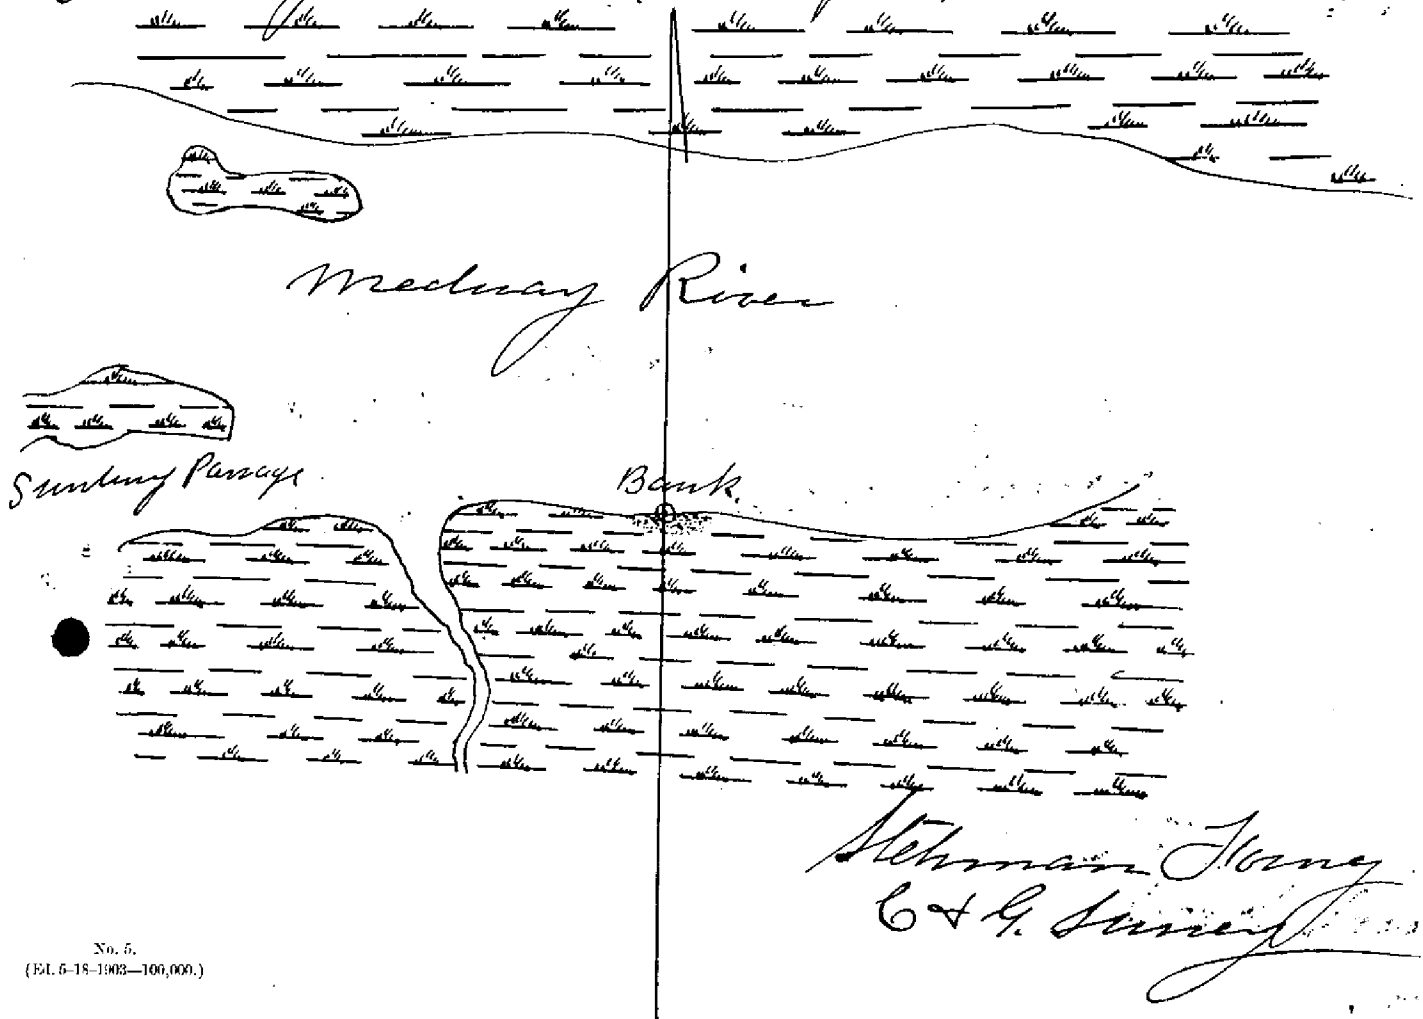 Medway River
Sunbury Passage
Bank.
Stehman Forney
C & G. Survey
No. 5.
(Ed. 5-18-1903—100,000.)